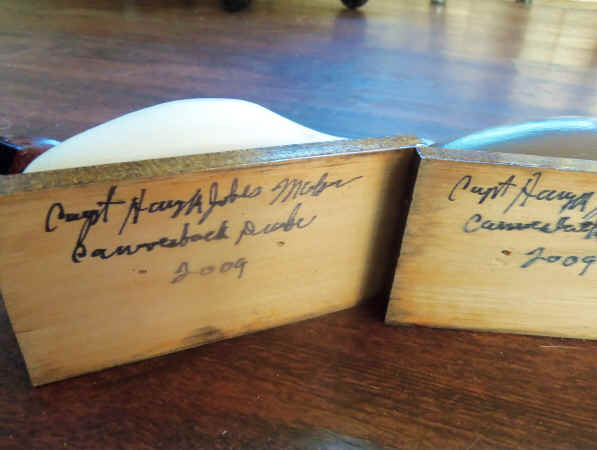 Capt Harry Jobes Maker
Canvasback Drake
2009
Capt Harry
Canvasback
2009